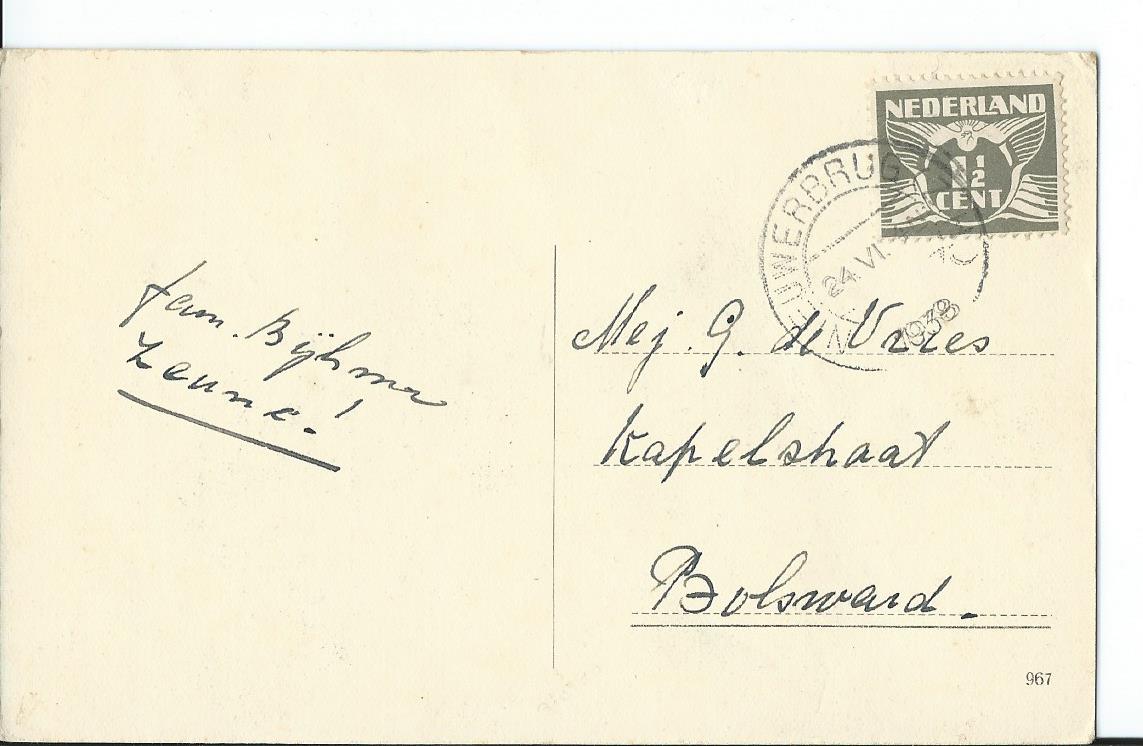 NEDERLAND
1½
CENT
24 VI.
1938
fam. Bijlsma
Mej. G. de Vries
Kapelstraat
Bolsward.
967